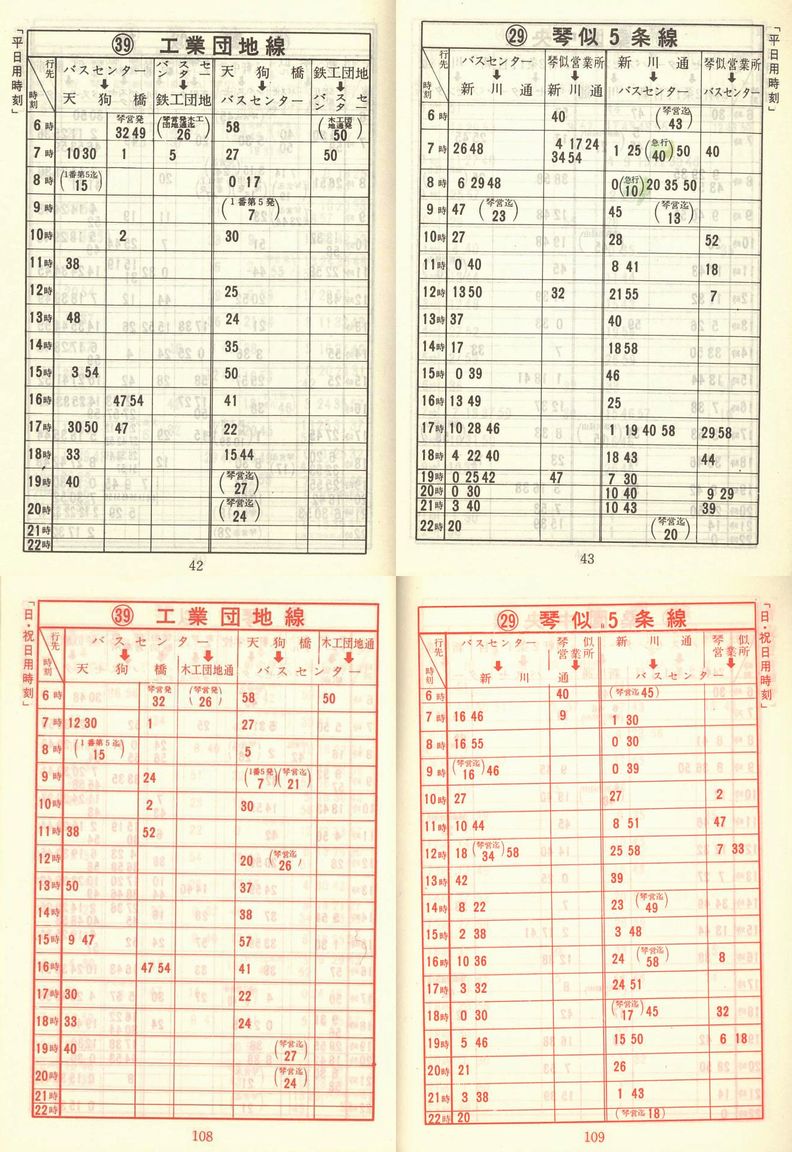 「平日用時刻」
㊴ 工業団地線
行先 時刻 バスセンター➡天狗橋 バスセンター➡鉄工団地 天狗橋➡バスセンター 鉄工団地➡バスセンター
6時 (琴営発 32 49) (琴営発木工団地通発 26) 58 (木工団地通発 50)
7時 10 30 1 5 27 50
8時 (1番第5迄 15) 0 17
9時 (1番第5発 7)
10時 2 30
11時 38
12時 25
13時 48 24
14時 35
15時 3 54 50
16時 47 54 41
17時 30 50 47 22
18時 33 15 44
19時 40 (琴営迄 27)
20時 (琴営迄 24)
21時
22時
42
「平日用時刻」
㉙ 琴似5条線
行先 時刻 バスセンター➡新川通 琴似営業所➡新川通 新川通➡バスセンター 琴似営業所➡バスセンター
6時 40 (琴営迄 43)
7時 26 48 4 17 24 34 54 1 25 (急行 40) 50 40
8時 6 29 48 0 (急行 10) 20 35 50
9時 47 (琴営迄 23) 45 (琴営迄 13)
10時 27 28 52
11時 0 40 8 41 18
12時 13 50 32 21 55 7
13時 37 40
14時 17 18 58
15時 0 39 46
16時 13 49 25
17時 10 28 46 1 19 40 58 29 58
18時 4 22 40 18 43 44
19時 0 25 42 47 7 30
20時 0 30 10 40 9 29
21時 3 40 10 43 39
22時 20 (琴営迄 20)
43
「日・祝日用時刻」
㊴ 工業団地線
行先 時刻 バスセンター➡天狗橋 ➡木工団地通 天狗橋➡バスセンター 木工団地通➡
6時 琴営発 32 (琴営発 26) 58 50
7時 12 30 1 27
8時 (1番第5迄 15) 5
9時 24 (1番5発 7) (琴営迄 21)
10時 2 30
11時 38 52
12時 20 (琴営迄 26)
13時 50 37
14時 38
15時 9 47 57
16時 47 54 41
17時 30 22
18時 33 24
19時 40 (琴営迄 27)
20時 (琴営迄 24)
21時
22時
108
「日・祝日用時刻」
㉙ 琴似5条線
行先 時刻 バスセンター➡新川通 琴似営業所➡ 新川通➡バスセンター 琴似営業所➡
6時 40 (琴営迄 45)
7時 16 46 9 1 30
8時 16 55 0 30
9時 (琴営迄 16) 46 0 39
10時 27 27 2
11時 10 44 8 51 47
12時 18 (琴営迄 34) 58 25 58 7 33
13時 42 39
14時 8 22 23 (琴営迄 49)
15時 2 38 3 48
16時 10 36 24 (琴営迄 58) 8
17時 3 32 24 51
18時 0 30 (琴営迄 17) 45 32
19時 5 46 15 50 6 18
20時 21 26
21時 3 38 1 43
22時 20 (琴営迄 18)
109